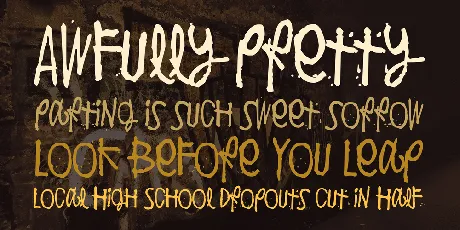 AWFULLY PRETTY
PARTING IS SUCH SWEET SORROW
LOOK BEFORE YOU LEAP
LOCAL HIGH SCHOOL DROPOUTS CUT IN HALF